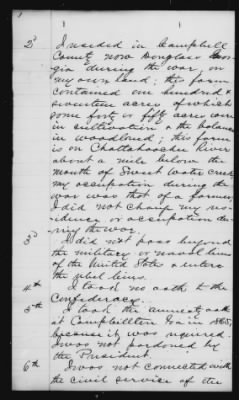 2d I resided in Campbell
County now Douglass Geor-
gia during the war, on
my own land; the farm
contained one hundred &
seventeen acres of which
some forty or fifty acres were
in cultivation & the balance
in woodland; this farm
is on Chattahoochee River
about a mile below the
mouth of Sweet Water creek
my occupation during the
war was that of a farmer,
I did not change my res-
idence or occupation du-
ring the war.
3d I did not pass beyond
the military or naval lines
of the United States & enter
the rebel lines.
4th I took no oath to the
Confederacy.
5th I took the amnesty oath
at Campbellton Ga in 1865,
because it was required.
I was not pardoned by
the President.
6th I was not connected with
the civil service of the